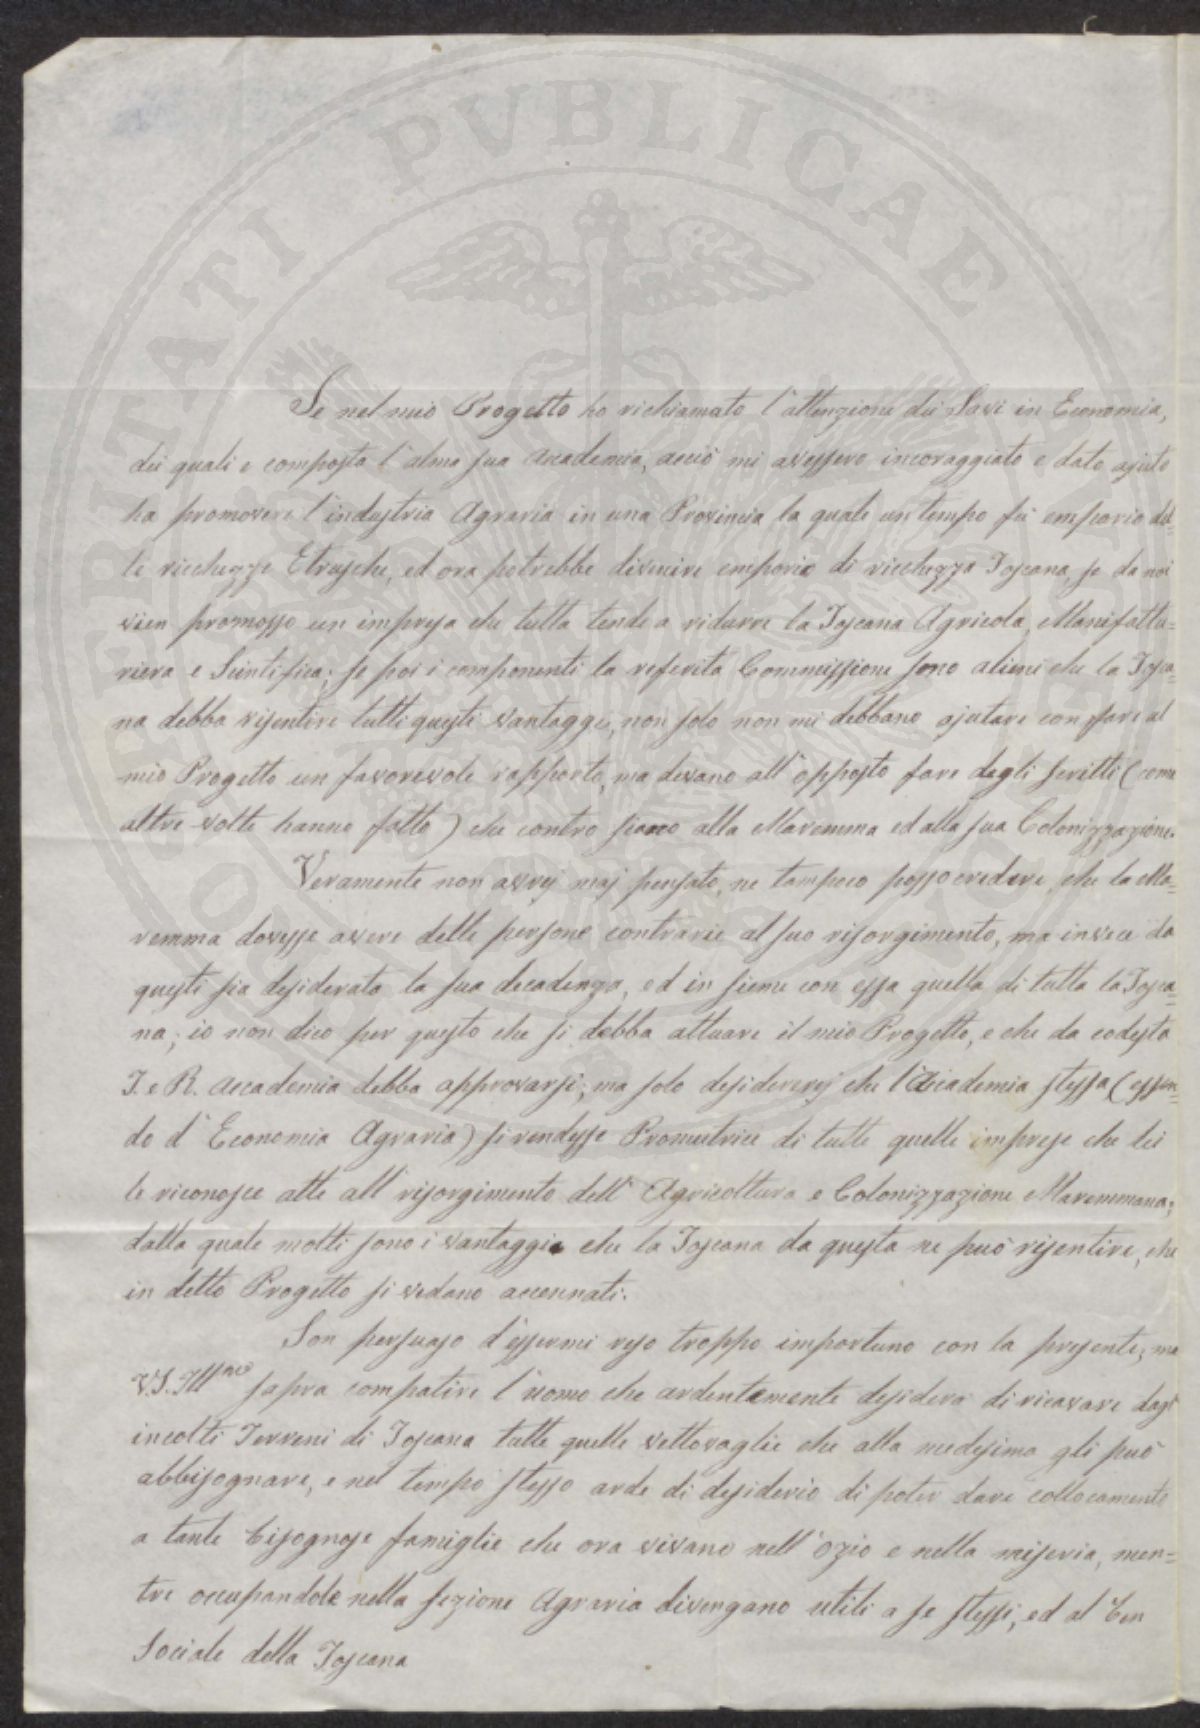 PROSPERITATI PVBLICAE
Se nel mio Progetto ho richiamato l'attenzione dei Savi in Economia,
dei quali e composta l'alma sua Accademia, acciò mi avessero incoraggiato e dato ajuto
ha promovere l'industria Agraria in una Provincia la quale un tempo fù emporio del-
le ricchezze Etrusche, ed ora potrebbe divenire emporio di ricchezza Toscana, se da noi
vien promosso un impresa che tutta tende a ridurre la Toscana Agricola, Manifattu-
riera e Sientifica; se poi i componenti la referita Commissione sono alieni che la Tosca-
na debba risentire tutti questi vantaggi, non solo non mi debbano ajutare con fare al
mio Progetto un favorevole rapporto, ma devano all'opposto fare degli scritti (come
altre volte hanno fatto) che contro siano alla Maremma ed alla sua Colonizzazione.
Veramente non avrej maj pensato, ne tampoco posso credere, che la Ma-
remma dovesse avere delle persone contrarie al suo risorgimento, ma invece da
questi sia desiderata la sua decadenza, ed in sieme con essa quella di tutta la Tosca-
na; io non dico per questo che si debba attuare il mio Progetto, e che da codesta
I. e R. Accademia debba approvarsi; ma solo desidererej che l'Accademia stessa (essen-
do d'Economia Agraria) si rendesse Promutrice di tutte quelle imprese che lei
le riconosce atte all'risorgimento dell'Agricoltura e Colonizzazione Maremmana;
dalla quale molti sono i vantaggi che la Toscana da questa ne può risentire, che
in detto Progetto si vedano accennati.
Son persuaso d'essermi reso troppo importuno con la presente, ma
V.S. Illma saprà compatire l'uomo che ardentemente desidera di ricavare dagl'
incolti Terreni di Toscana tutte quelle vettovaglie che alla medesima gli può
abbisognare, e nel tempo stesso arde di desiderio di poter dare collocamento
a tante bisognose famiglie che ora vivano nell'ozio e nella miseria, men-
tre occupandole nella sezione Agraria divengano utili a se stessi, ed al ben
Sociale della Toscana